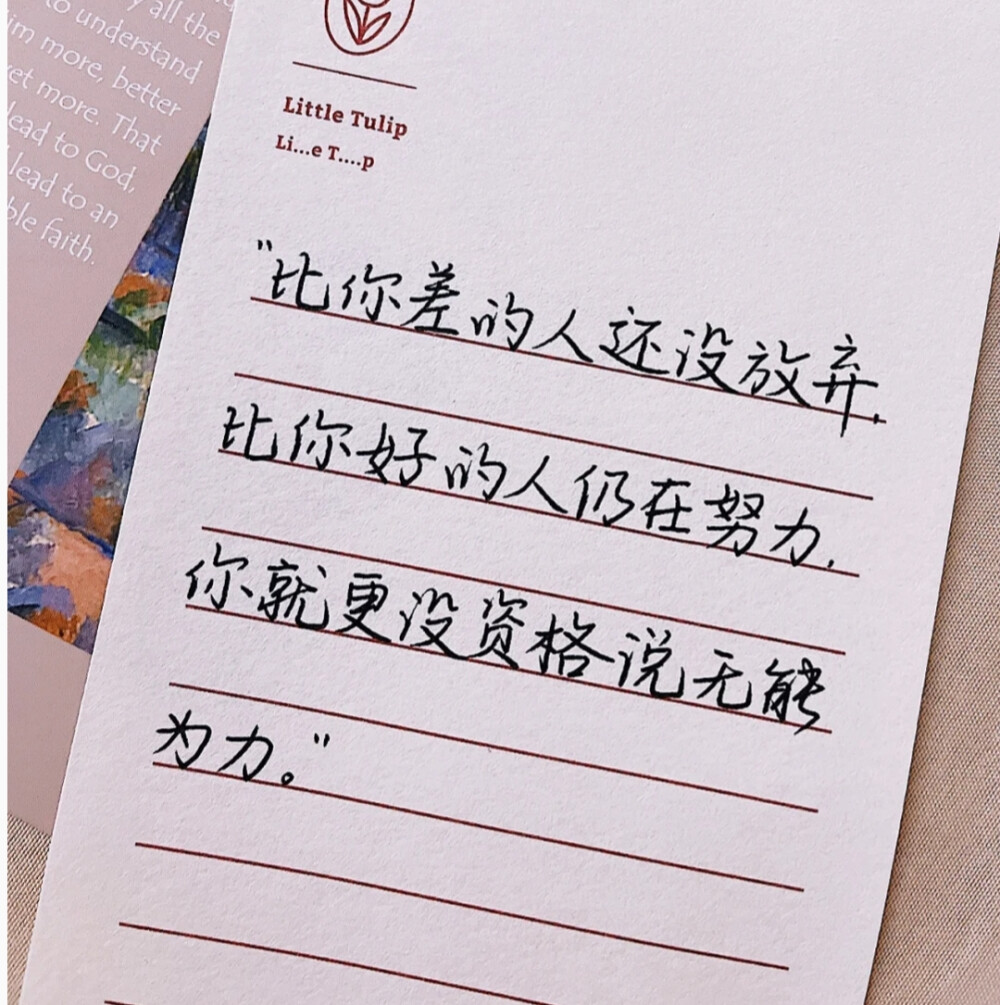 all the
to understand
im more, better
et more. That
ead to God,
lead to an
ble faith.
Little Tulip
Li...e T....p
"比你差的人还没放弃.
比你好的人仍在努力.
你就更没资格说无能
为力。"